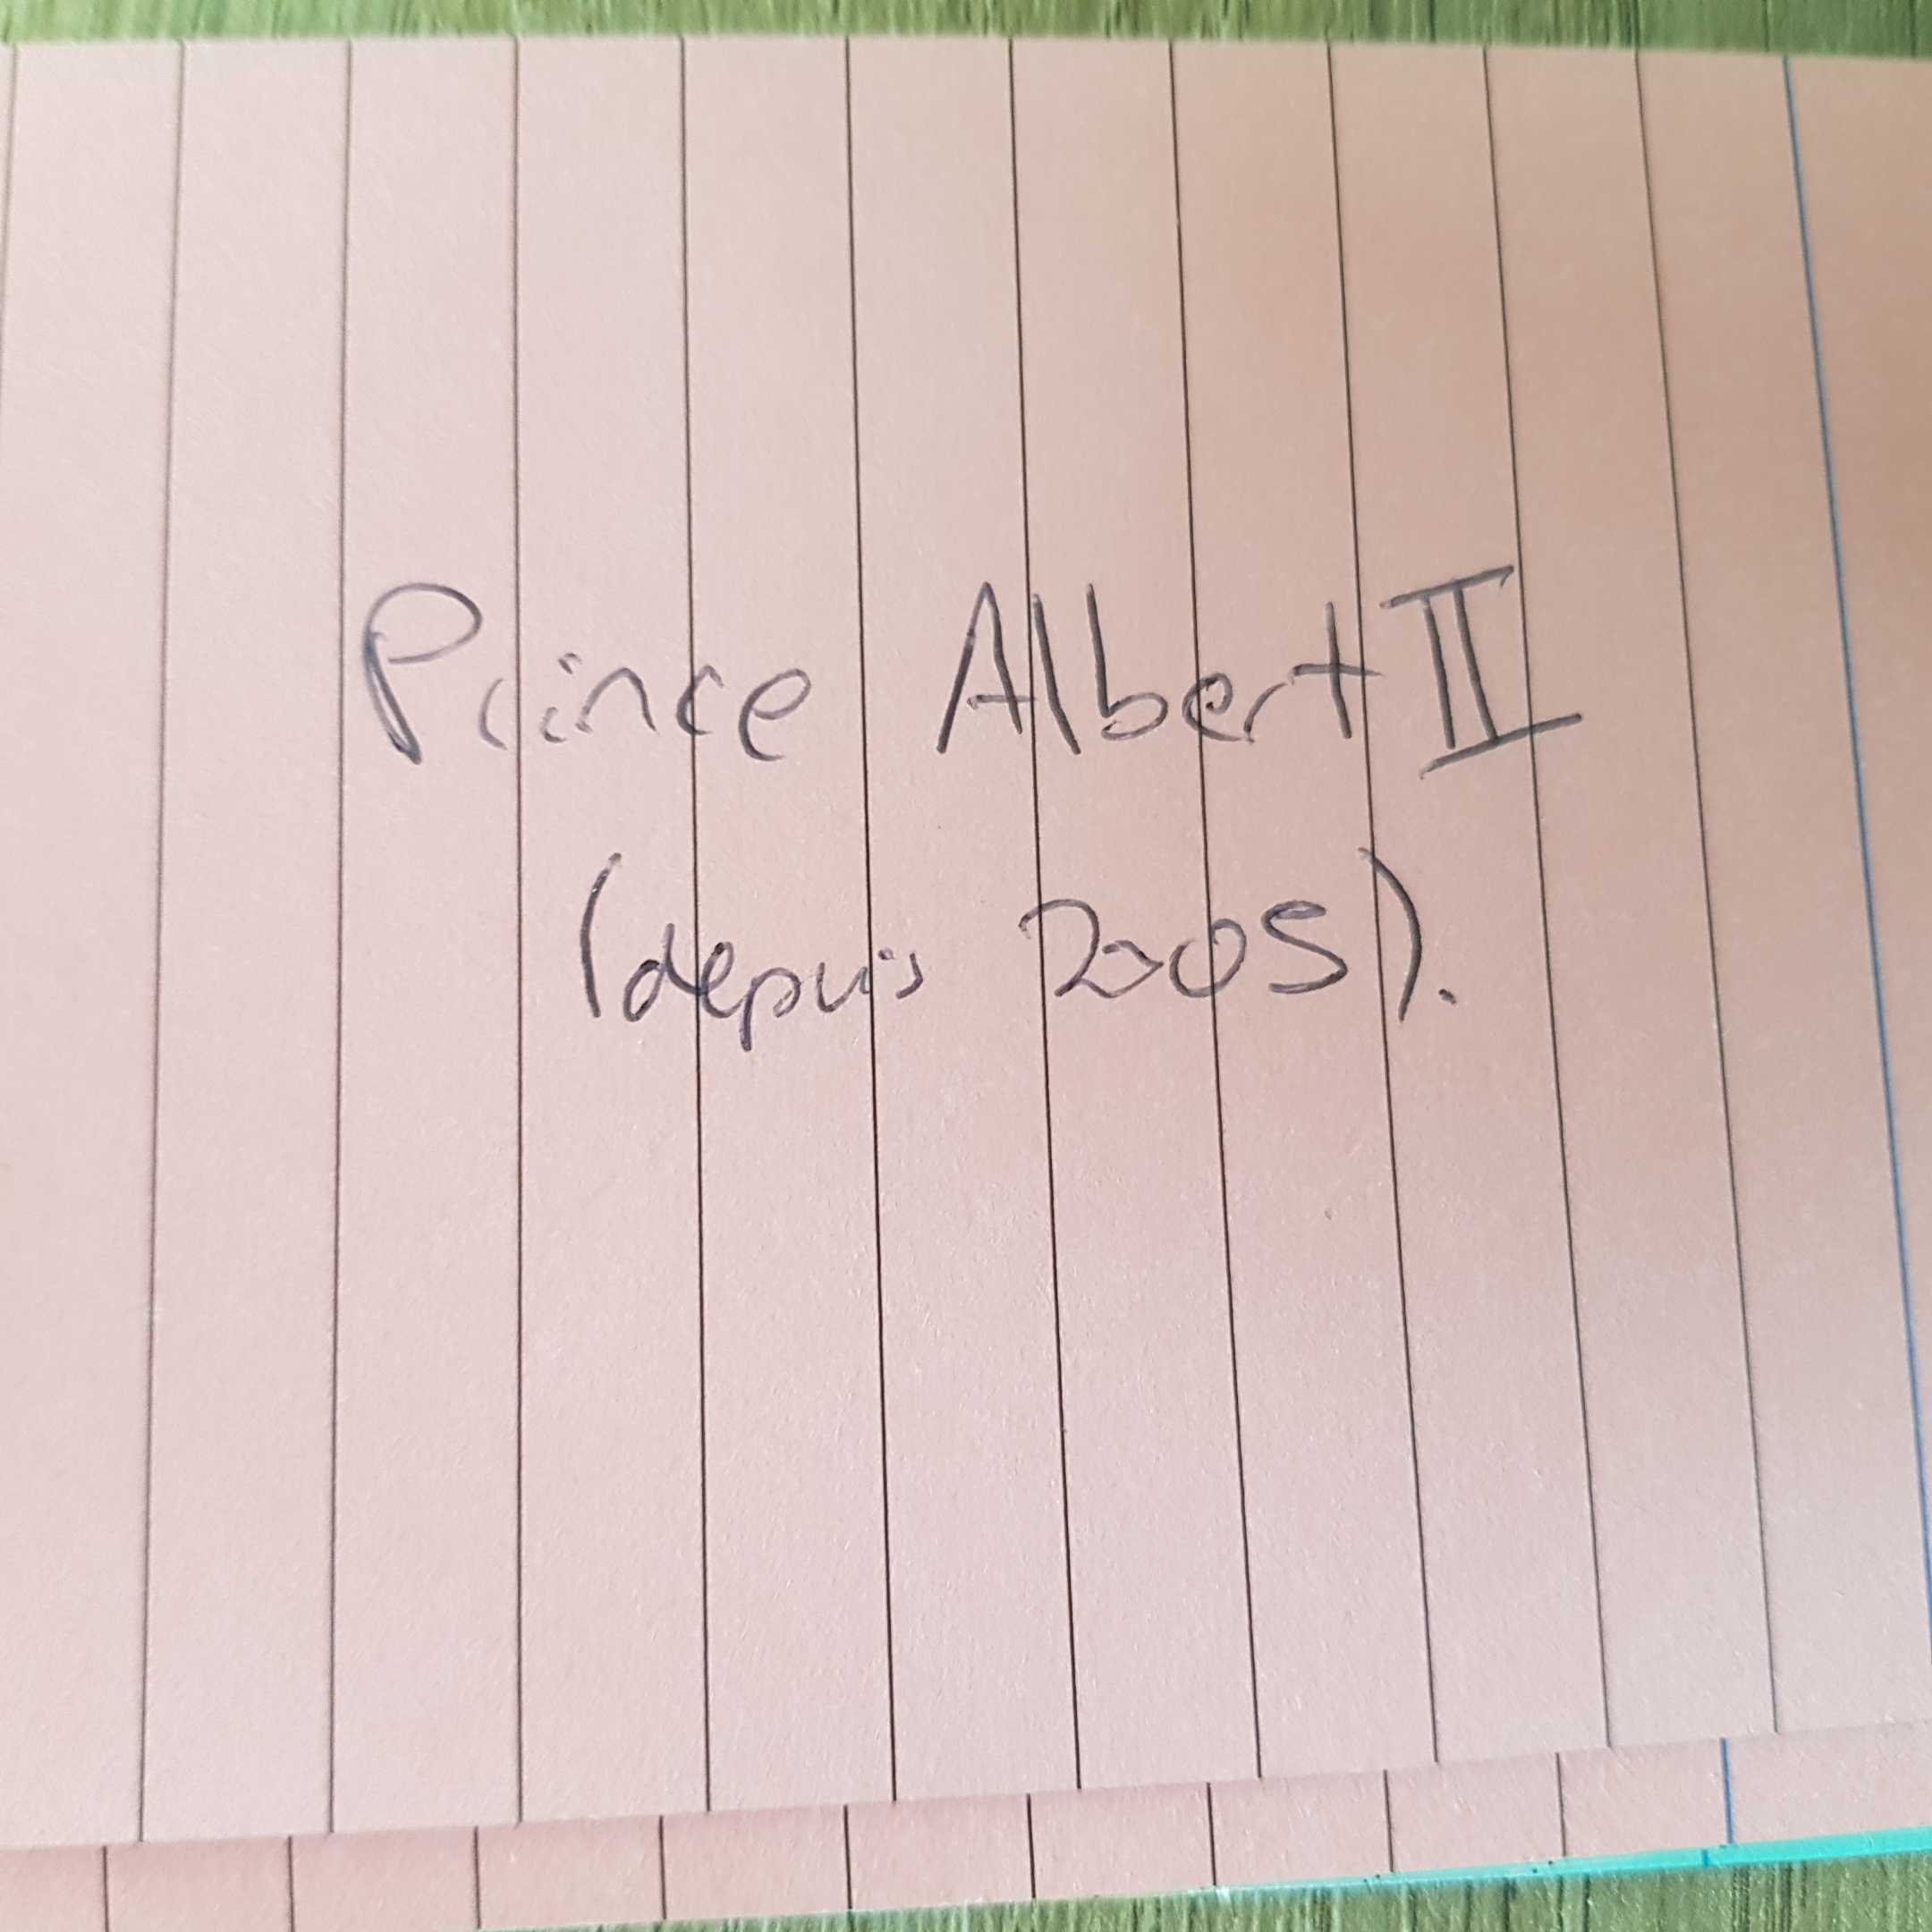 Prince Albert II
(depuis 2005).